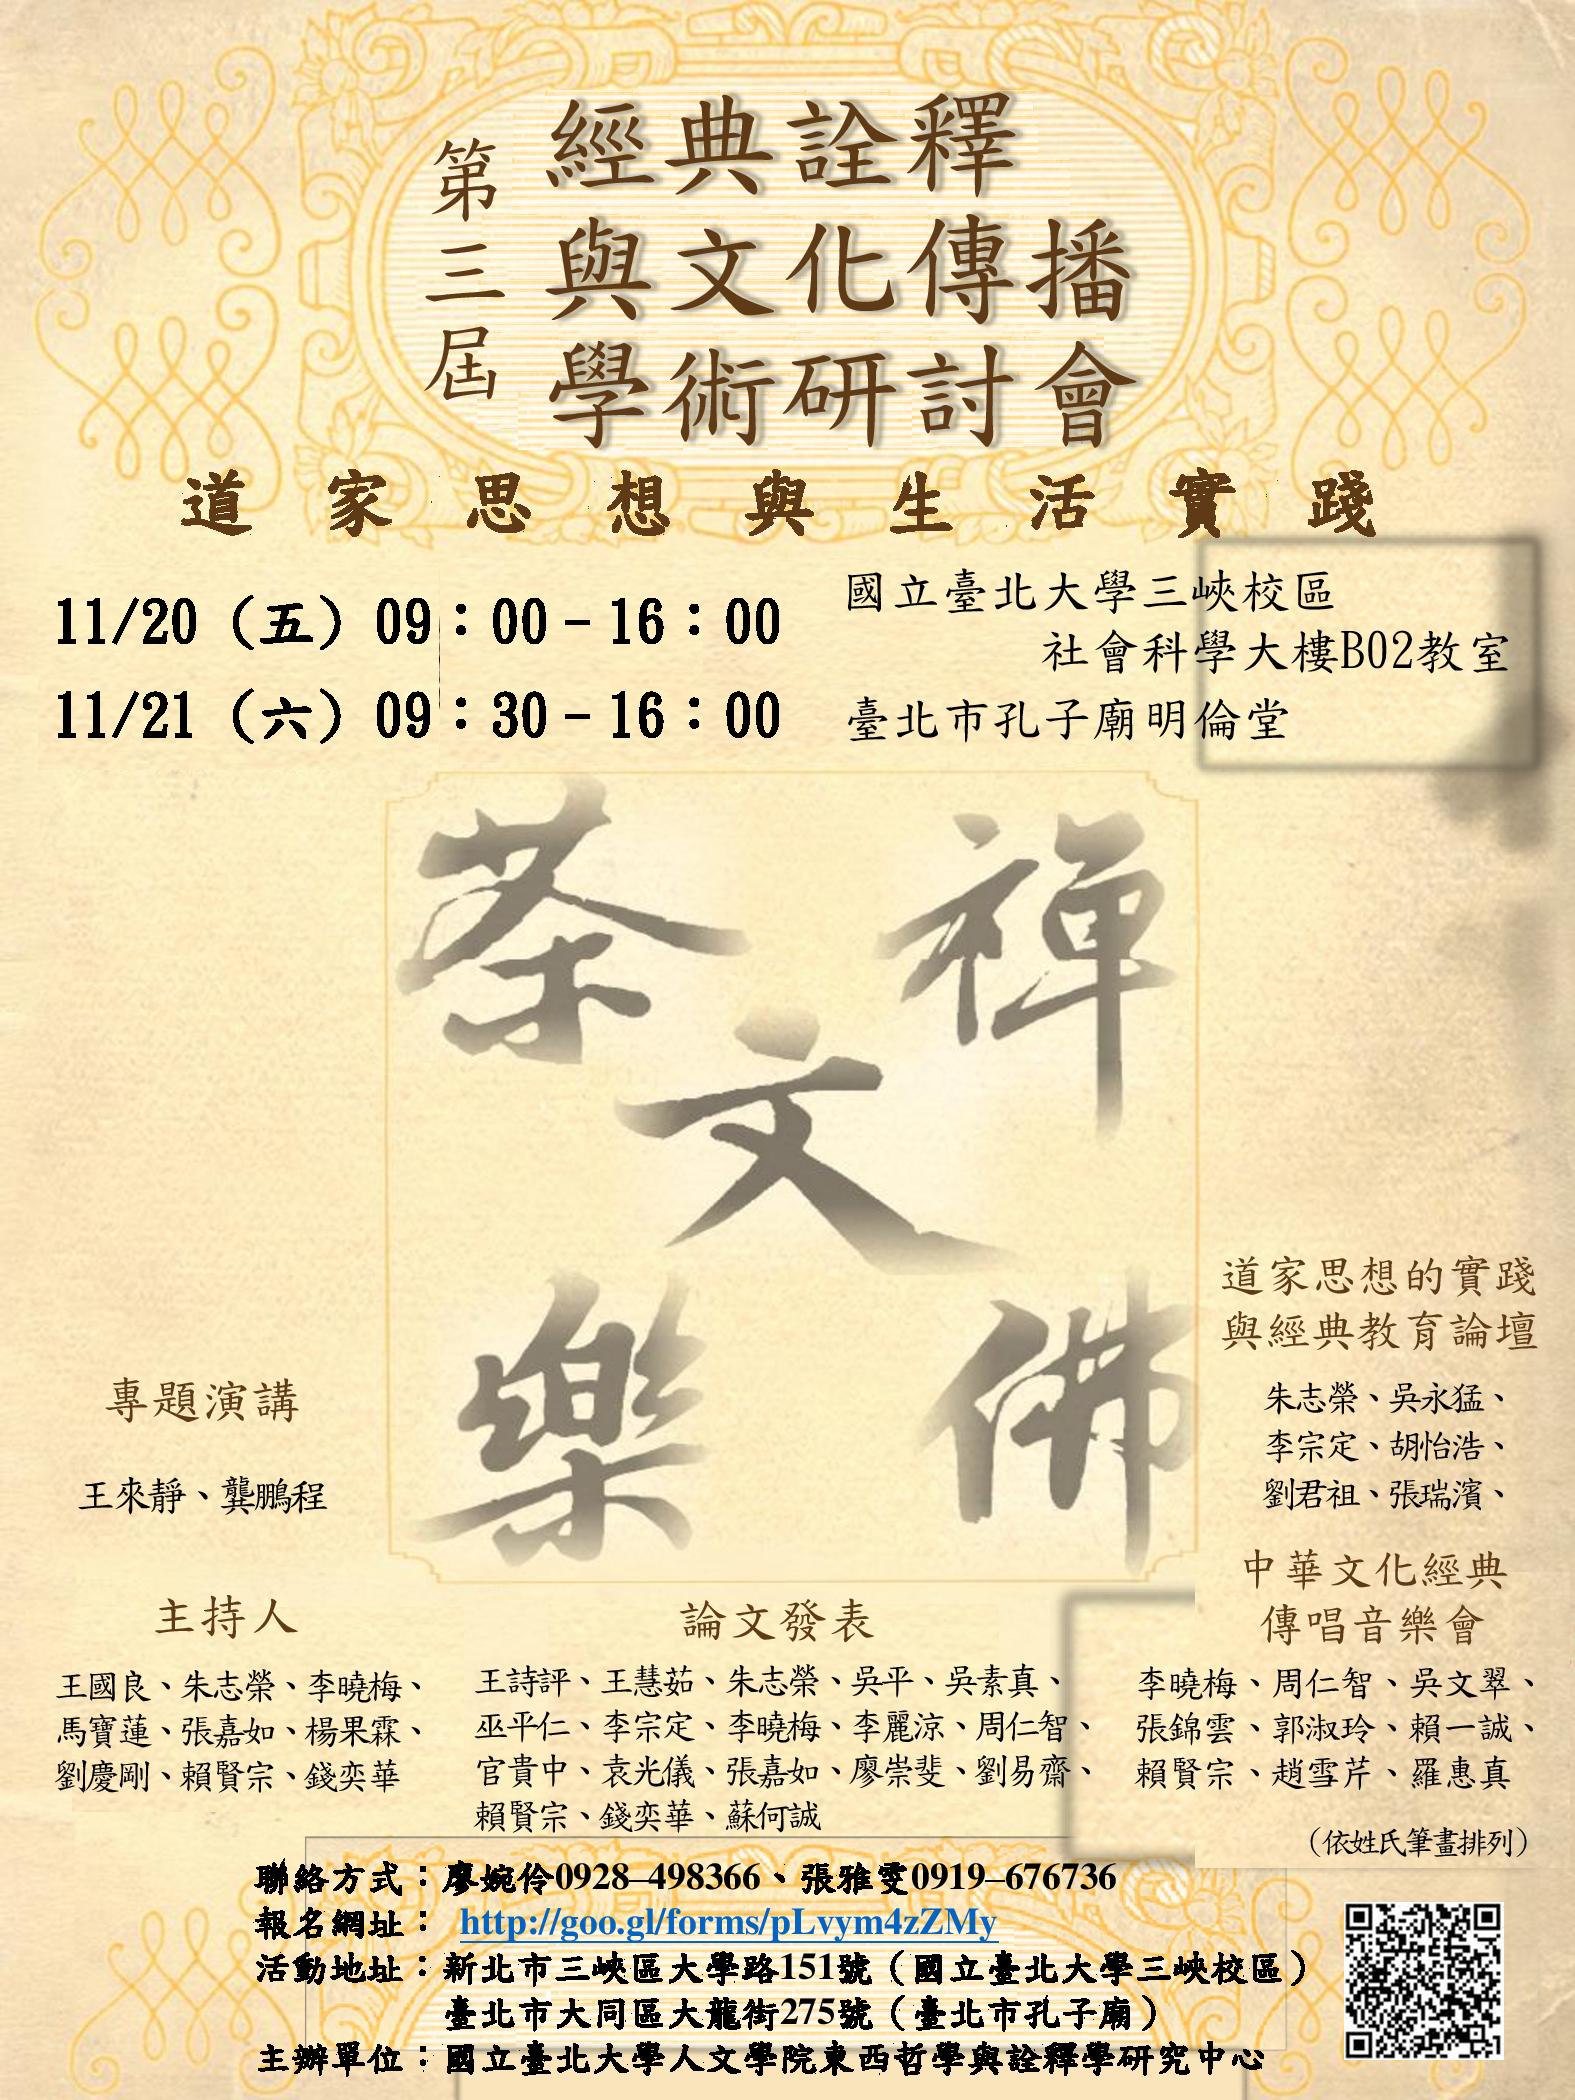 第三屆
經典詮釋
與文化傳播
學術研討會
道家思想與生活實踐
11/20（五）09：00－16：00
國立臺北大學三峽校區
社會科學大樓B02教室
11/21（六）09：30－16：00
臺北市孔子廟明倫堂
茶 禪
文
樂 佛
專題演講
王來靜、龔鵬程
道家思想的實踐
與經典教育論壇
朱志榮、吳永猛、
李宗定、胡怡浩、
劉君祖、張瑞濱、
主持人
王國良、朱志榮、李曉梅、
馬寶蓮、張嘉如、楊果霖、
劉慶剛、賴賢宗、錢奕華
論文發表
王詩評、王慧茹、朱志榮、吳平、吳素真、
巫平仁、李宗定、李曉梅、李麗涼、周仁智、
官貴中、袁光儀、張嘉如、廖崇斐、劉易齋、
賴賢宗、錢奕華、蘇何誠
中華文化經典
傳唱音樂會
李曉梅、周仁智、吳文翠、
張錦雲、郭淑玲、賴一誠、
賴賢宗、趙雪芹、羅惠真
（依姓氏筆畫排列）
聯絡方式：廖婉伶0928–498366、張雅雯0919–676736
報名網址： http://goo.gl/forms/pLvym4zZMy
活動地址：新北市三峽區大學路151號（國立臺北大學三峽校區）
臺北市大同區大龍街275號（臺北市孔子廟）
主辦單位：國立臺北大學人文學院東西哲學與詮釋學研究中心